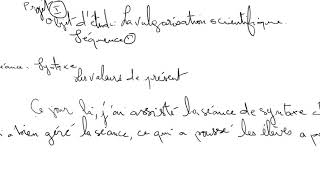 Projet I
Objet d'étude: La vulgarisation scientifique.
Séquence
séance: Syntaxe
Les valeurs de présent
Ce jour là, j'ai assisté la séance de syntaxe
bien géré la séance, ce qui a poussé les élèves a